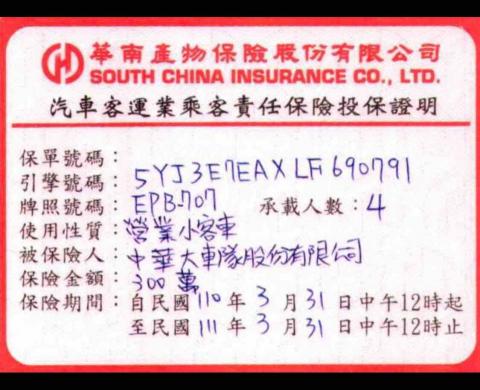 華南產物保險股份有限公司
SOUTH CHINA INSURANCE CO., LTD.
汽車客運業乘客責任保險投保證明
保單號碼：
引擎號碼：5YJ3E7EAXLF690791
牌照號碼：EPB-707 承載人數：4
使用性質：營業小客車
被保險人：中華大車隊股份有限公司
保險金額：300萬
保險期間：自民國110年3月31日中午12時起
至民國111年3月31日中午12時止